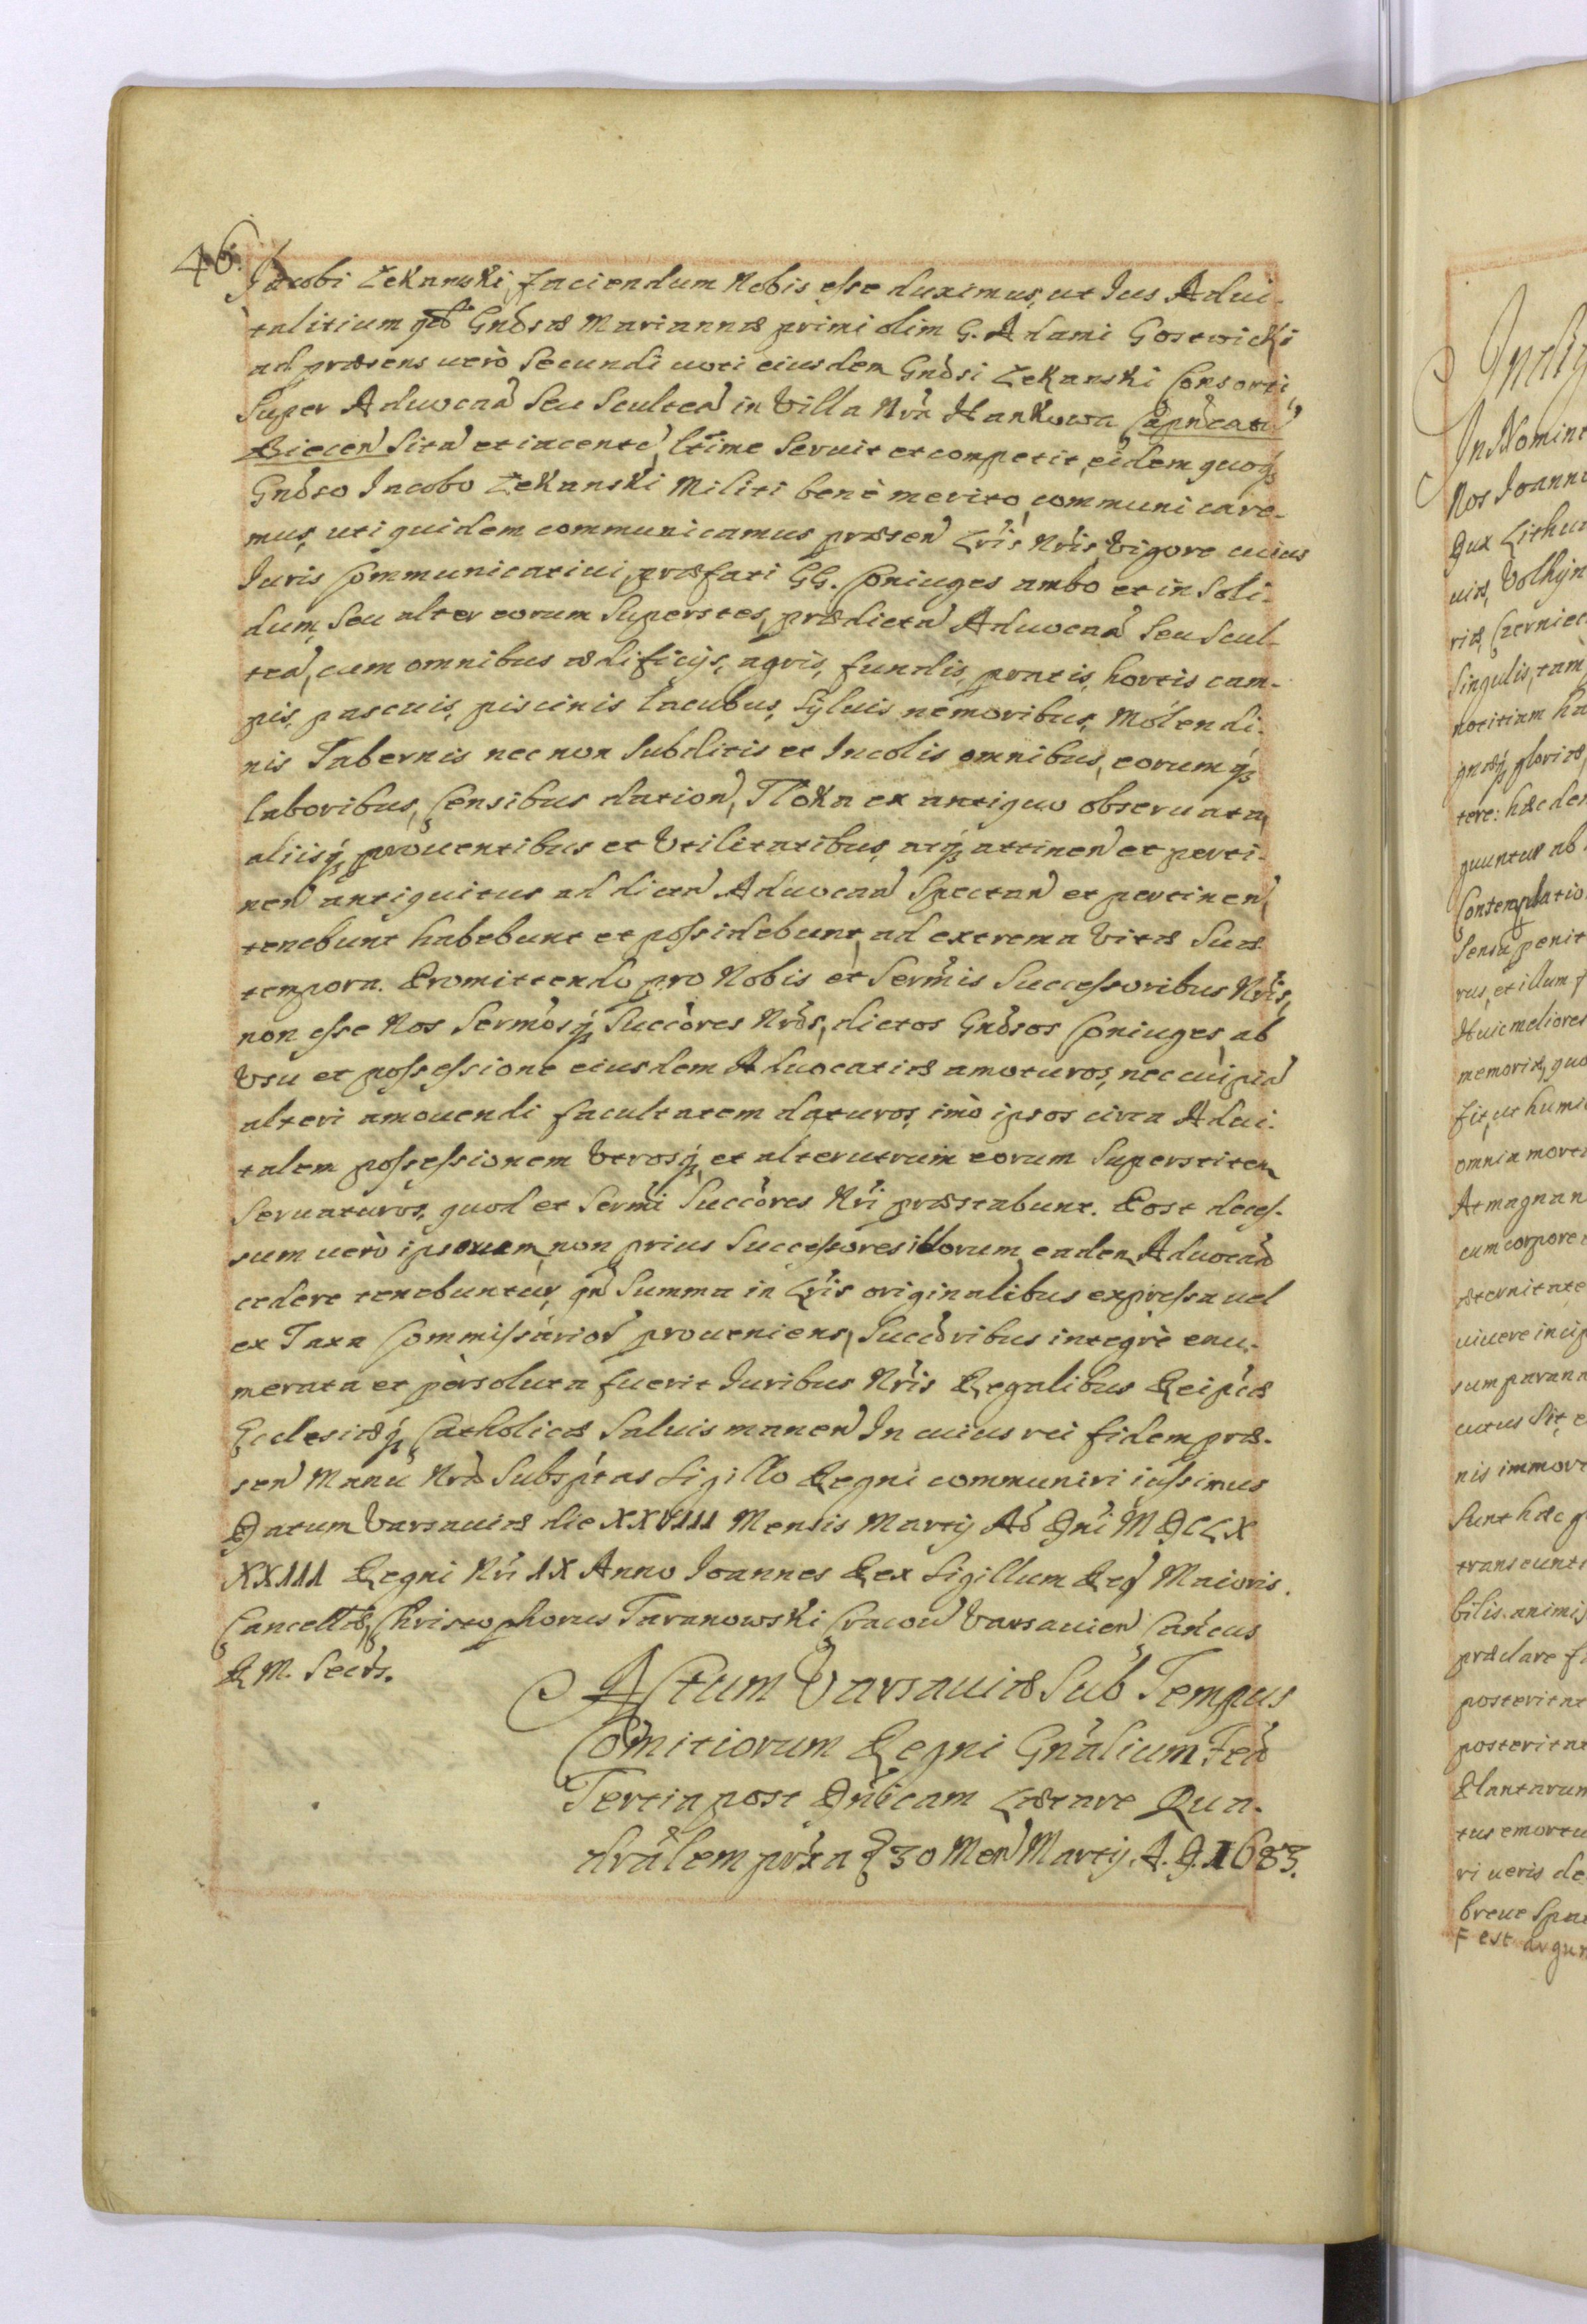 46.
Jacobi Zekanski, faciendum Nobis esse duximus, ut Ius Advi-
talitium qd Gndsæ Mariannæ primi olim G. Adami Gostwicki
ad præsens uerò Secundi uoti eiusdem Gndsi Zekanski Consorti,
Super Aduocaã Seu Scultea in Villa Nra Hankowa Capncatu
Biecen Sita et iacente, ltime Seruit et competit, eidem quoq
Gndso Iacobo Zekanski Militi benè merito, communicare-
mus, uti quidem communicamus præsen Lris Nris, Vigore cuius
Iuris Communicatiui, præfati GG. Coniuges ambo et in Soli-
dum, Seu alter eorum Superstes, prædicta Aduocaã Seu Scul-
tea, cum omnibus ædificijs, agris, fundis, pratis, hortis cam-
pis, pascuis, piscinis lacubus, Syluis nemoribus, Molendi-
nis Tabernis nec non Subditis et Incolis omnibus, eorumq
laboribus, Censibus dation, Tloka ex antiquo obseruata,
aliisq prouentibus et Vtilitatibus, atq attinen et perti-
nen antiquitus ad dictã Aduocaã Spectan et pertinen,
tenebunt habebunt et possidebunt, ad extrema Vitæ Suæ
tempora. Promittendo pro Nobis et Sermis Successoribus Nris,
non esse Nos Sermosq Succores Nros, dictos Gndsos Coniuges, ab
Vsu et possessione eiusdem Aduocatiæ amoturos, nec cuipiã
alteri amouendi facultatem daturos, imò ipsos circa Adui-
talem possessionem Vtrosq, et alterutrum eorum Superstitem
Seruaturos, quod et Sermi Succores Nri præstabunt. Post deces-
sum uerò ipsorum, non prius Successores illorum, eadem Aduocaã
cedere tenebuntur, qu Summa in Lris originalibus expressa uel
ex Taxa Commissarior proueniens, Succoribus integrè enu-
merata et persoluta fuerit Iuribus Nris Regalibus Reipcæ
Ecclesiæq Catholicæ Saluis manen In cuius rei fidem præ-
sen Manu Nra Subsptas Sigillo Regni communiri iussimus
Datum Varsauiæ die XXVIII Mensis Martij Ao Dni MDCLX
XXIII Regni Nri IX Anno Ioannes Rex Sigillum Reg Maioris
Cancellæ, Christophorus Taranowski Cracou Varsauien Cancus
R M. Secrs.
Actum Varsauiæ Sub Tempus
Comitiorum Regni Gnalium Feã
Tertia post Dnicam Lætare Qua-
dralem prxa 30 Men Martij A.D. 1683.
In Nomine
Nos Ioanne
Dux Lithua
uiæ, Volhyn
riæ, Czernie
Singulis, tam
notitiam ha
gnæq gloriæ
tere: hæc de
quuntur ab
Contemplatio
Sensu penit
rus, et illum
Huic meliores
memoriæ, quo
fit, ut humi
omnia morti
At magnan
cum corpore
æternitate
uiuere incip
sum paranna
cutus Sit, e
nis immort
Sunt hæc
transeunt
bilis animi
præclare f
posteritat
posteritat
Plantarum
tus emortu
ri ueris de
breue Spat
F est argu